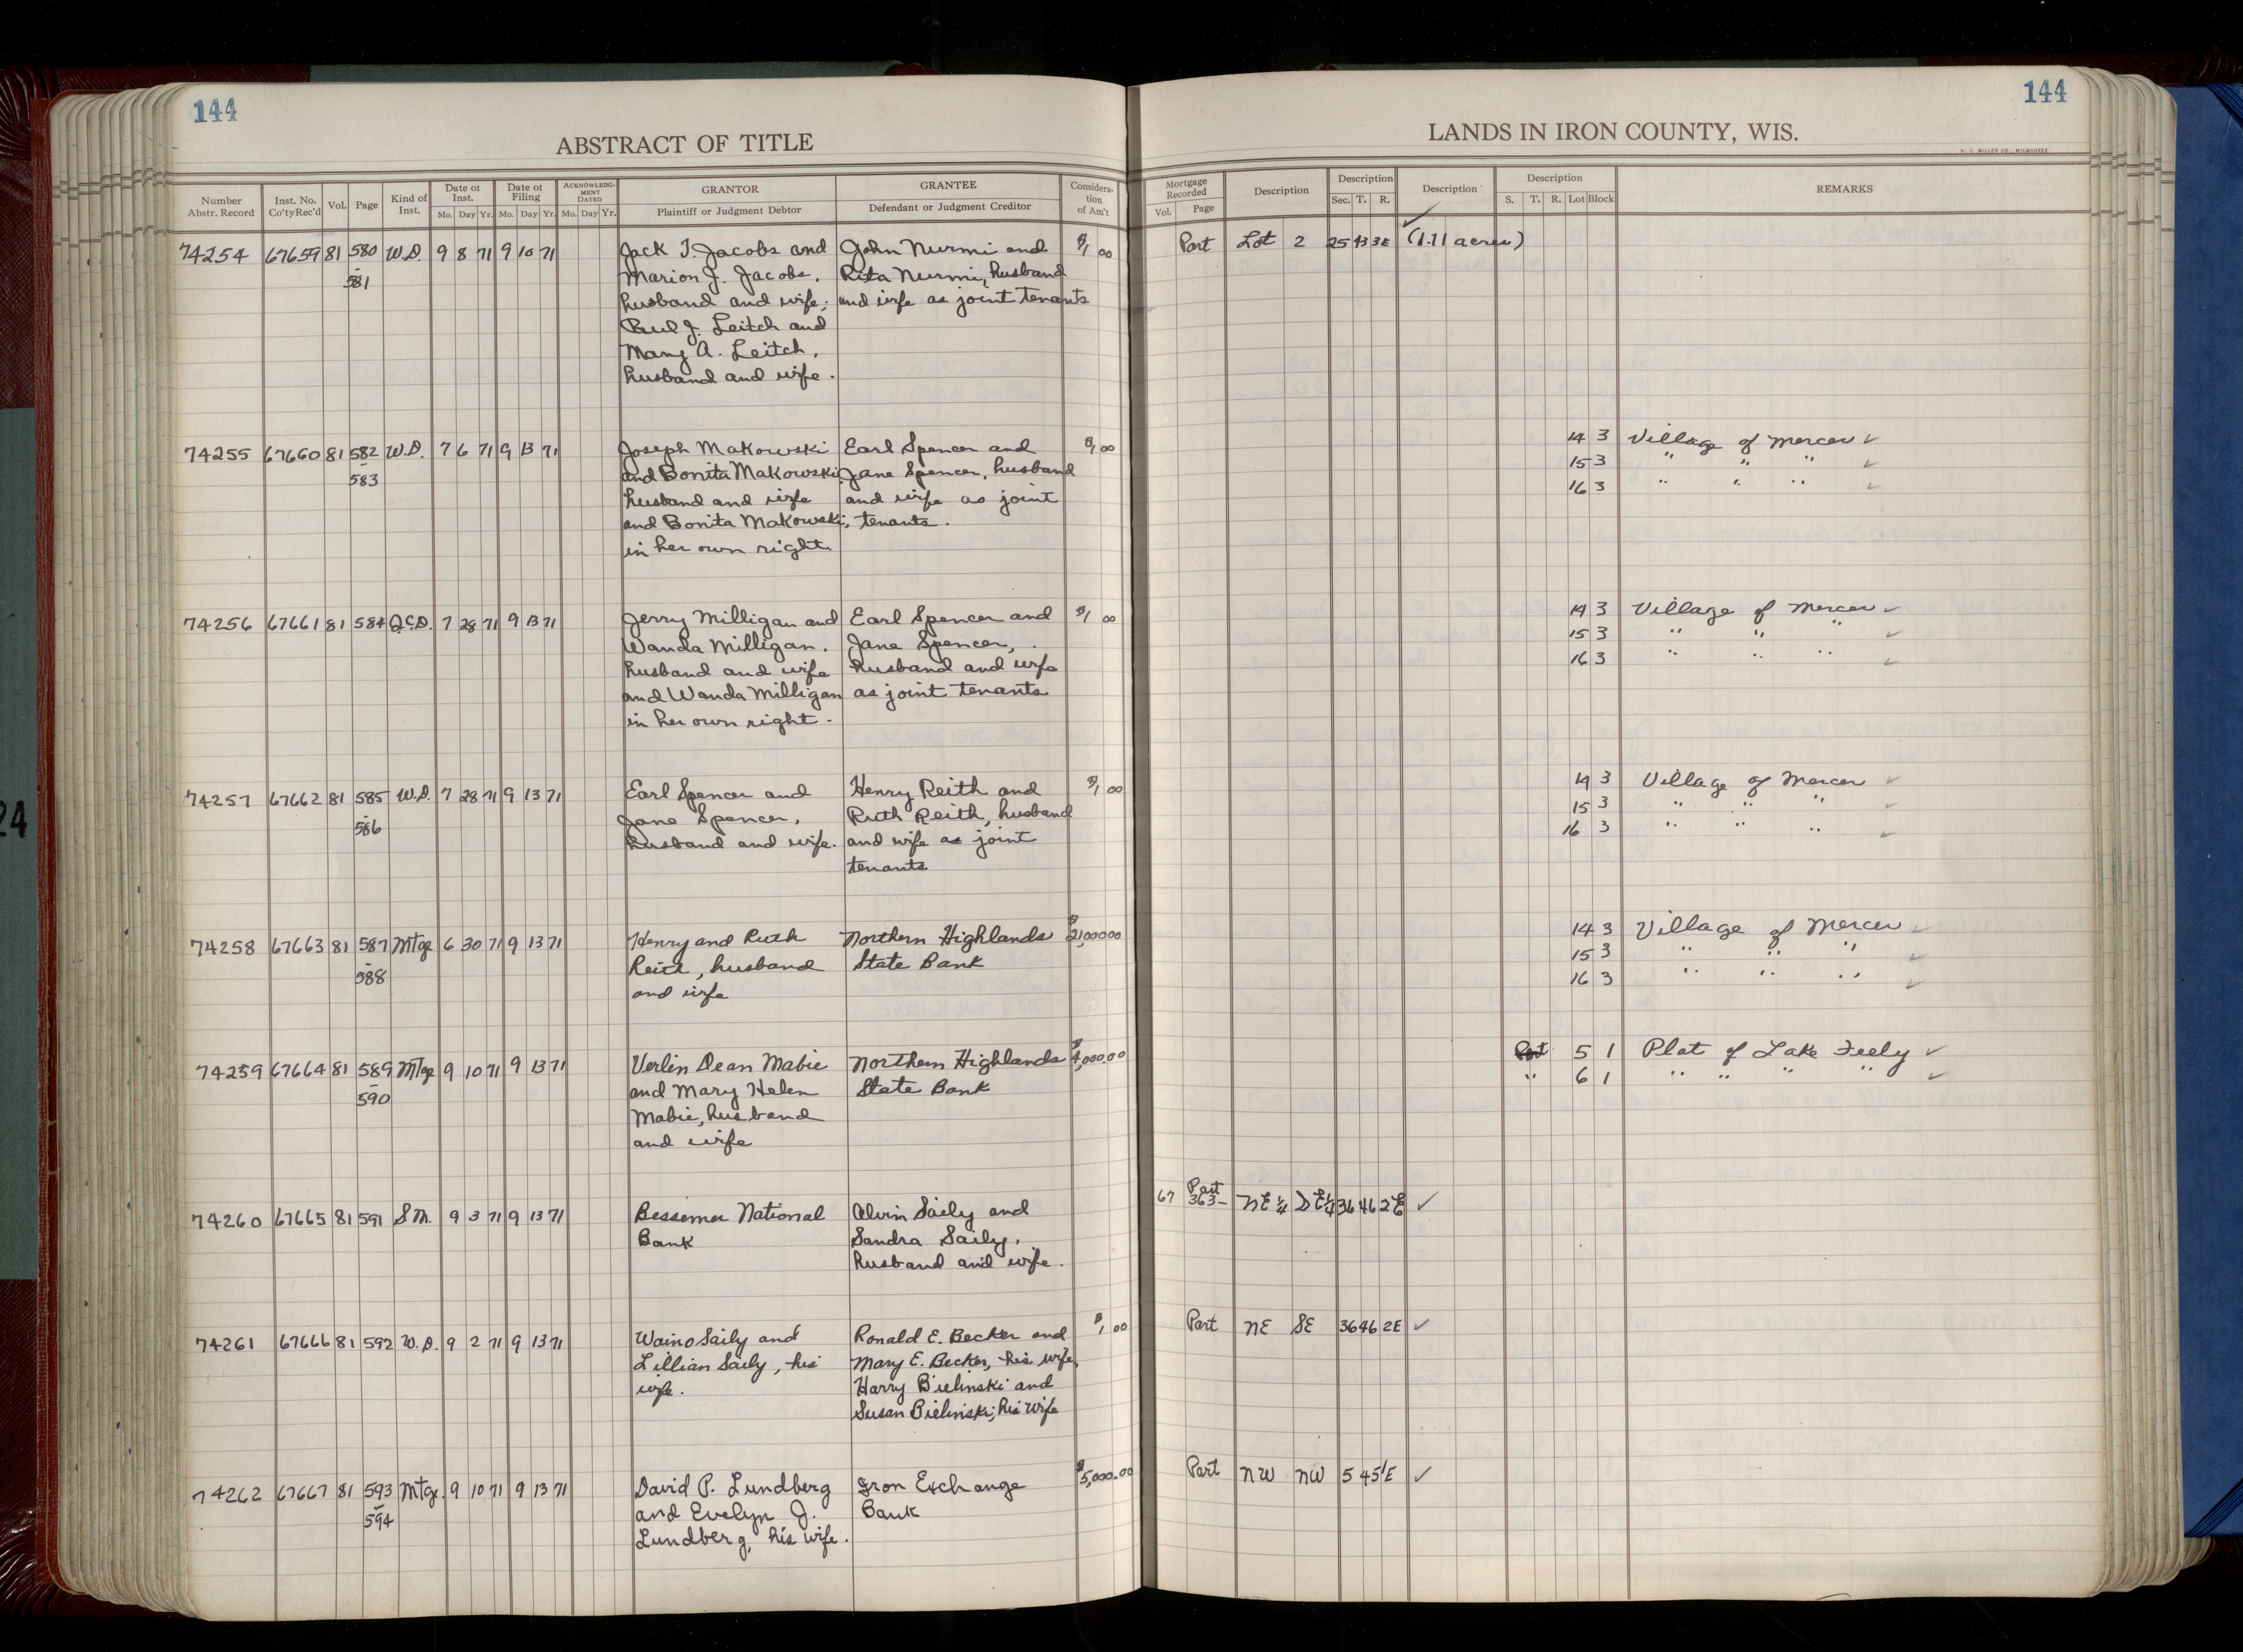 144
144
ABSTRACT OF TITLE
LANDS IN IRON COUNTY, WIS.
H. C. MILLER CO., MILWAUKEE
Number Abstr. Record | Inst. No. Co'tyRec'd | Vol. | Page | Kind of Inst. | Date of Inst. Mo. Day Yr. | Date of Filing Mo. Day Yr. | ACKNOWLEDGMENT DATED Mo. Day Yr. | GRANTOR Plaintiff or Judgment Debtor | GRANTEE Defendant or Judgment Creditor | Consideration of Am't | Mortgage Recorded Vol. Page | Description | Description Sec. T. R. | Description | Description S. T. R. Lot Block | REMARKS
74254 67659 81 580 W.D. 9 8 71 9 10 71 Jack T. Jacobs and John Nurmi and $1 00 Part Lot 2 25 43 3E (1.11 acres) ✓
- 581 Marion J. Jacobs, Rita Nurmi, husband
husband and wife; and wife as joint tenants
Paul J. Leitch and
Mary A. Leitch,
husband and wife.
74255 67660 81 582 W.D. 7 6 71 9 13 71 Joseph Makowski Earl Spencer and $1 00 14 3 Village of Mercer ✓
- 583 and Bonita Makowski, Jane Spencer, husband 15 3 " " " ✓
husband and wife and wife as joint 16 3 " " " ✓
and Bonita Makowski, tenants.
in her own right.
74256 67661 81 584 Q.C.D. 7 28 71 9 13 71 Jerry Milligan and Earl Spencer and $1 00 14 3 Village of Mercer ✓
Wanda Milligan, Jane Spencer, 15 3 " " " ✓
husband and wife husband and wife 16 3 " " " ✓
and Wanda Milligan as joint tenants
in her own right.
74257 67662 81 585 W.D. 7 28 71 9 13 71 Earl Spencer and Henry Reith and $1 00 14 3 Village of Mercer ✓
- 586 Jane Spencer, Ruth Reith, husband 15 3 " " " ✓
husband and wife. and wife as joint 16 3 " " " ✓
tenants
74258 67663 81 587 Mtge 6 30 71 9 13 71 Henry and Ruth Northern Highlands $21,000.00 14 3 Village of Mercer ✓
- 588 Reith, husband State Bank 15 3 " " " ✓
and wife 16 3 " " " ✓
74259 67664 81 589 Mtge 9 10 71 9 13 71 Verlin Dean Mabie Northern Highlands $4,000.00 Part 5 1 Plat of Lake Feely ✓
- 590 and Mary Helen State Bank " 6 1 " " " " ✓
Mabie, husband
and wife
74260 67665 81 591 S.M. 9 3 71 9 13 71 Bessemer National Alvin Saily and 67 363- Part NE¼ SE¼ 36 46 2E ✓
Bank Sandra Saily,
husband and wife.
74261 67666 81 592 W.D. 9 2 71 9 13 71 Waino Saily and Ronald E. Becker and $1 00 Part NE SE 36 46 2E ✓
Lillian Saily, his Mary E. Becker, his wife,
wife. Harry Bielinski and
Susan Bielinski, his wife
74262 67667 81 593 Mtge. 9 10 71 9 13 71 David P. Lundberg Iron Exchange $5,000.00 Part NW NW 5 45 1E ✓
- 594 and Evelyn J. Bank
Lundberg, his wife.
24